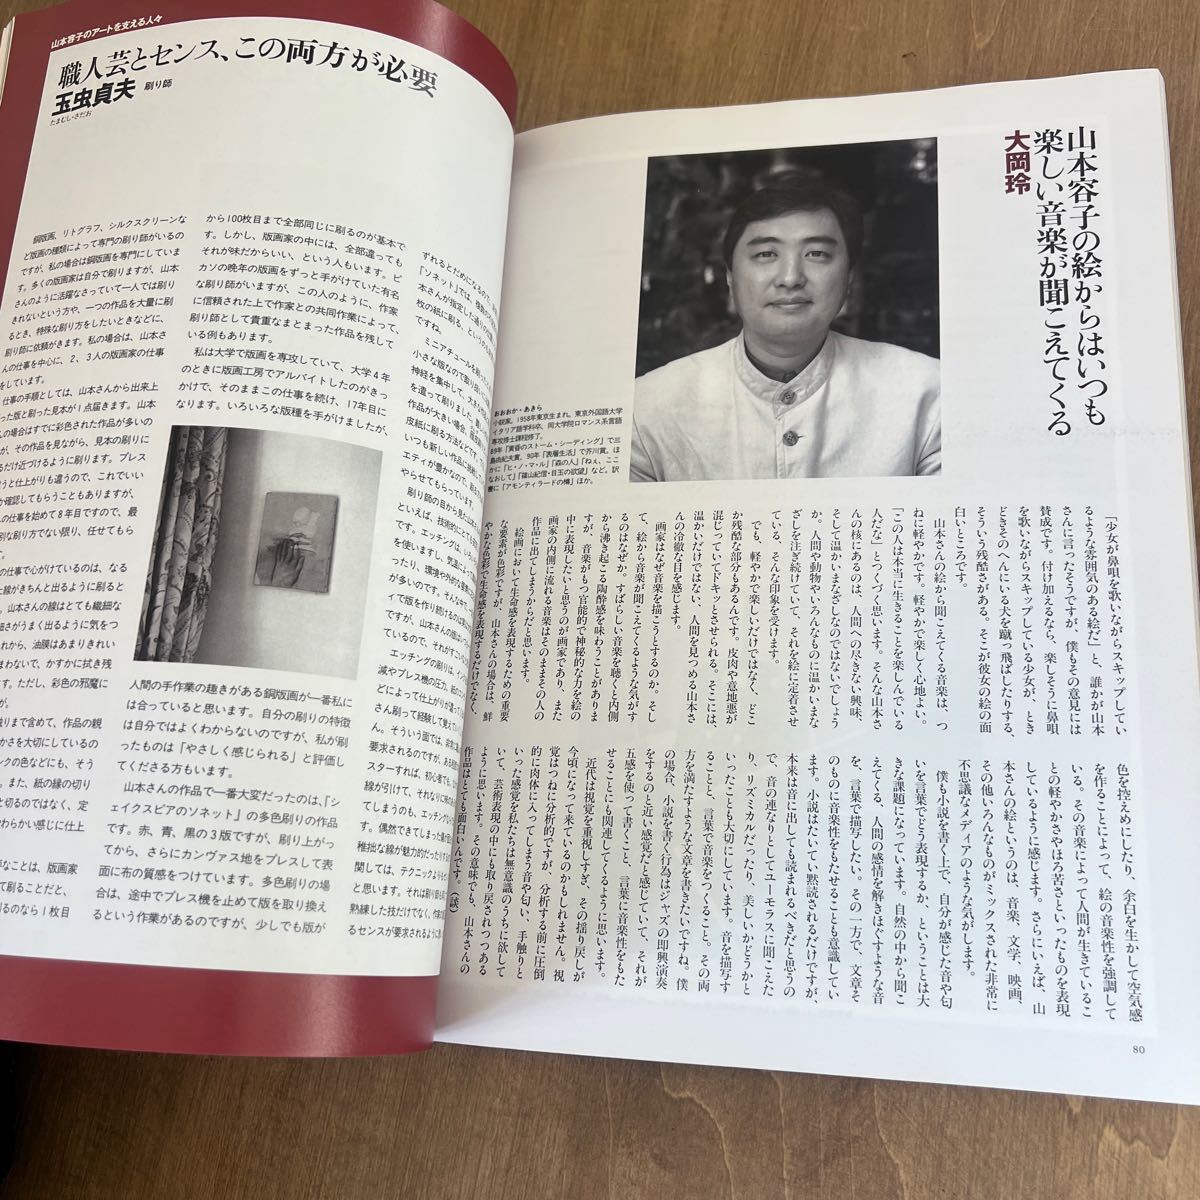 山本容子のアートを支える人々
職人芸とセンス、この両方が必要
玉虫貞夫 刷り師
たまむし・さだお
銅版画、リトグラフ、シルクスクリーンな
ど版画の種類によって専門の刷り師がいるの
ですが、私の場合は銅版画を専門にしていま
す。多くの版画家は自分で刷りますが、山本
さんのように活躍なさっていて一人では刷り
きれないという方や、一つの作品を大量に刷
るとき、特殊な刷り方をしたいときなどに、
刷り師に依頼がきます。私の場合は、山本さ
んの仕事を中心に、2、3人の版画家の仕事
をしています。
仕事の手順としては、山本さんから出来上
った版と刷った見本が1点届きます。山本
の場合はすでに彩色された作品が多いの
が、その作品を見ながら、見本の刷りに
るだけ近づけるように刷ります。プレス
うと仕上がりも違うので、これでいい
か確認してもらうこともありますが、
んの仕事を始めて8年目ですので、最
別な刷り方でない限り、任せてもら
の仕事で心がけているのは、なる
線がきちんと出るように刷ると
。山本さんの線はとても繊細な
細さがうまく出るように気をつ
れから、油膜はあまりきれい
まわないで、かすかに拭き残
す。ただし、彩色の邪魔に
が。
刷りまで含めて、作品の親
かさを大切にしているの
ンクの色などにも、そう
。また、紙の縁の切り
と切るのではなく、定
わらかい感じに仕上
なことは、版画家
て刷ることだと、
るのなら1枚目
から100枚目まで全部同じに刷るのが基本で
す。しかし、版画家の中には、全部違っても
それが味だからいい、という人もいます。ピ
カソの晩年の版画をずっと手がけていた有名
な刷り師がいますが、この人のように、作家
に信頼された上で作家との共同作業によって、
刷り師として貴重なまとまった作品を残して
いる例もあります。
私は大学で版画を専攻していて、大学4年
のときに版画工房でアルバイトしたのがきっ
かけで、そのままこの仕事を続け、17年目に
なります。いろいろな版種を手がけましたが、
人間の手作業の趣きがある銅版画が一番私に
は合っていると思います。自分の刷りの特徴
は自分ではよくわからないのですが、私が刷
ったものは「やさしく感じられる」と評価し
てくださる方もいます。
山本さんの作品で一番大変だったのは、『シ
ェイクスピアのソネット』の多色刷りの作品
です。赤、青、黒の3版ですが、刷り上がっ
てから、さらにカンヴァス地をプレスして表
面に布の質感をつけています。多色刷りの場
合は、途中でプレス機を止めて版を取り換え
るという作業があるのですが、少しでも版が
ずれるとだめになるので、
「ソネット」では、
本さんが指定した
枚の紙に刷る、という
ですね。
ミニアチュールを刷った
小さな版なので
神経を集中して、大きな
を遣って刷りました。
作品が大きい場合、
皮紙に刷る方法など
いつも新しい作品に挑
エティが豊かなので、
やらせてもらっています。
刷り師の目から見た山本
といえば、技術的に
です。エッチングは、
を使いますし、気温によっ
ったり、環境や外的な要
が多いのです。そんな中で
イで版を作り続けるのは
ですが、山本さんの版は
ているので、それが
エッチングの刷りは、イン
減やプレス機の圧力、紙の
どによって仕上がりが違って
さん刷って経験して覚えて
す。そういう面では、非常に
要求されるのですが、ある程度
スターすれば、初心者でも、
線が引けて、それなりに味のある
てしまうのも、エッチングの
す。偶然できてしまった
稚拙な線が魅力的だったりする
関しては、テクニックより
と思います。それは刷り師も
熟練した技だけでなく、作品に
るセンスが要求されるように思い
山本容子の絵からはいつも
楽しい音楽が聞こえてくる
大岡玲
おおおか・あきら
小説家。1958年東京生まれ。東京外国語大学
イタリア語学科卒、同大学院ロマンス系言語
専攻修士課程修了。
89年「黄昏のストーム・シーディング」で三
島由紀夫賞、90年「表層生活」で芥川賞。ほ
かに「ヒ・ノ・マ・ル」「森の人」「ねぇ、ここ
なおして」「篠山紀信・目玉の欲望」など。訳
書に「アモンティラードの樽」ほか。
「少女が鼻唄を歌いながらスキップしてい
るような雰囲気のある絵だ」と、誰かが山本
さんに言ったそうですが、僕もその意見には
賛成です。付け加えるなら、楽しそうに鼻唄
を歌いながらスキップしている少女が、とき
どきそのへんにいる犬を蹴っ飛ばしたりする、
そういう残酷さがある。そこが彼女の絵の面
白いところです。
山本さんの絵から聞こえてくる音楽は、つ
ねに軽やかです。軽やかで楽しく心地よい。
「この人は本当に生きることを楽しんでいる
人だな」とつくづく思います。そんな山本さ
んの核にあるのは、人間への尽きない興味、
そして温かいまなざしなのではないでしょう
か。人間や動物やいろんなものに温かいまな
ざしを注ぎ続けていて、それを絵に定着させ
ている、そんな印象を受けます。
でも、軽やかで楽しいだけではなく、どこ
か残酷な部分もあるんです。皮肉や意地悪が
混じっていてドキッとさせられる。そこには、
温かいだけではない、人間を見つめる山本さ
んの冷徹な目を感じます。
画家はなぜ音楽を描こうとするのか、そし
て、絵から音楽が聞こえてくるような気がす
るのはなぜか。すばらしい音楽を聴くと内側
から沸き起こる陶酔感を味わうことがありま
すが、音楽がもつ官能的で神秘的な力を絵の
中に表現したいと思うのが画家であり、また
画家の内側に流れる音楽はそのままその人の
作品に出てしまうからだと思います。
絵画において生命感を表現するための重要
な要素が色彩ですが、山本さんの場合は、鮮
やかな色彩で生命感を表現するだけでなく、
色を控えめにしたり、余白を生かして空気感
を作ることによって、絵の音楽性を強調して
いる。その音楽によって人間が生きているこ
との軽やかさやほろ苦さといったものを表現
しているように感じます。さらにいえば、山
本さんの絵というのは、音楽、文学、映画、
その他いろんなものがミックスされた非常に
不思議なメディアのような気がします。
僕も小説を書く上で、自分が感じた音や匂
いを言葉でどう表現するか、ということは大
きな課題になっています。自然の中から聞こ
えてくる、人間の感情を解きほぐすような音
を、言葉で描写したい。その一方で、文章そ
のものに音楽性をもたせることも意識してい
ます。小説はたいてい黙読されるだけですが、
本来は音に出しても読まれるべきだと思うの
で、音の連なりとしてユーモラスに聞こえた
り、リズミカルだったり、美しいかどうかと
いったことも大切にしています。音を描写す
ることと、言葉で音楽をつくること。その両
方を満たすような文章を書きたいですね。僕
の場合、小説を書く行為はジャズの即興演奏
をするのと近い感覚だと感じていて、それが
五感を使って書くこと、言葉に音楽性をもた
せることにも関連してくるように思います。
近代は視覚を重視しすぎ、その揺り戻しが
今頃になって来ているのかもしれません。視
覚はつねに分析的ですが、分析する前に圧倒
的に肉体に入ってしまう音や匂い、手触りと
いった感覚を私たちは無意識のうちに欲して
いて、芸術表現の中にも取り戻されつつある
ように思います。その意味でも、山本さんの
作品はとても面白いんです。（談）
80